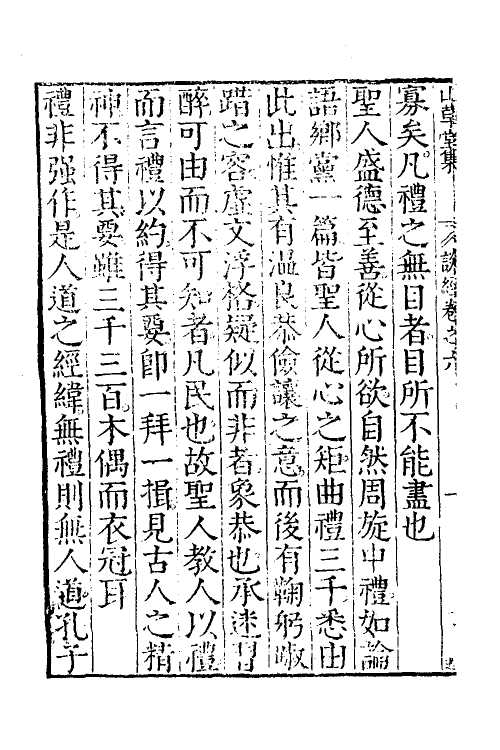 山草堂集　談經卷之六　一
寡矣凡禮之無目者目所不能盡也
聖人盛德至善從心所欲自然周旋中禮如論
語鄉黨一篇皆聖人從心之矩曲禮三千悉由
此出惟其有溫良恭儉讓之意而後有鞠躬踧
踖之容虛文浮格疑似而非者象恭也承迷習
醉可由而不可知者凡民也故聖人教人以禮
而言禮以約得其要卽一拜一揖見古人之精
神不得其要雖三千三百木偶而衣冠耳
禮非强作是人道之經緯無禮則無人道孔子